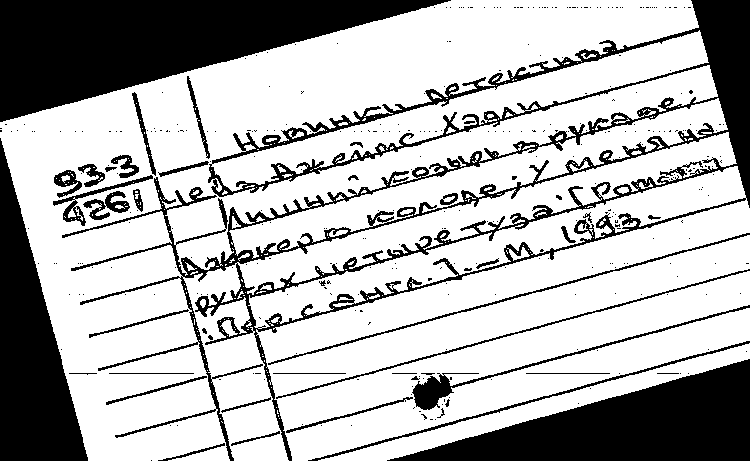 Новинки детектива.
93-3
4261
Чейз, Джеймс Хэдли.
Лишний козырь в рукаве;
Джокер в колоде; У меня на
руках четыре туза: [Романы
: Пер. с англ.]. – М., 1993.